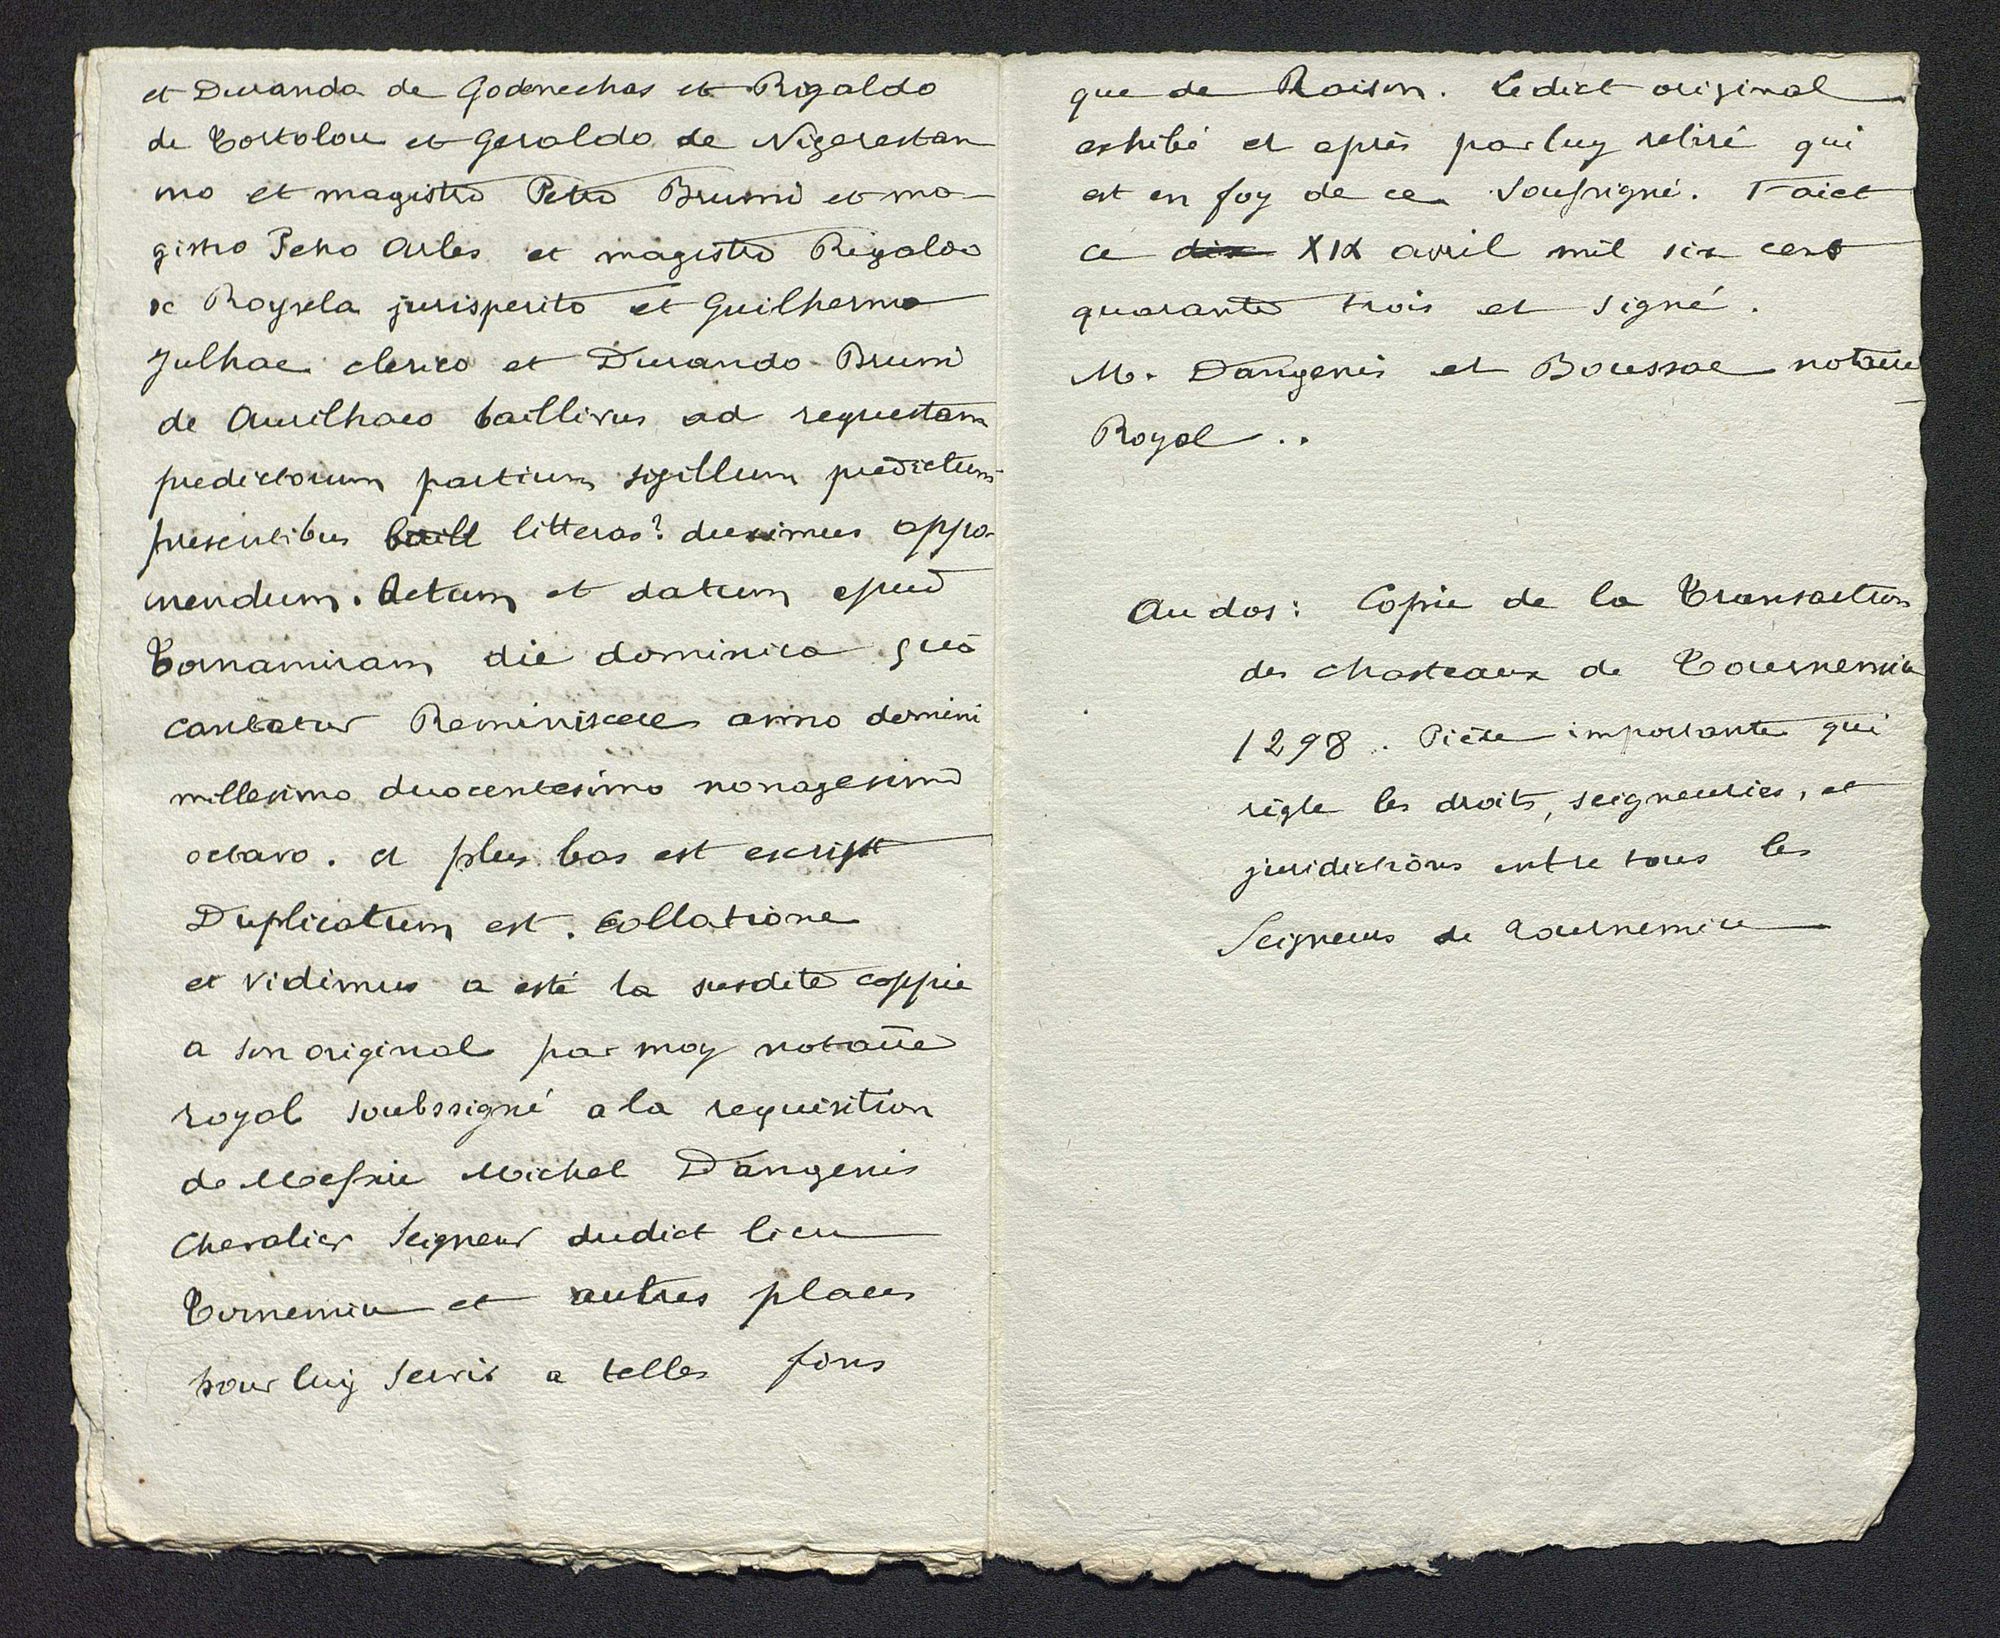 et Duranda de Godonechas et Rigaldo
de Tortolou et Geraldo de Nigerestan
mo et magistro Petro Bruni et ma-
gistro Petro Arles et magistro Rigaldo
de Roysela jurisperito et Guilhermo
Julhac clerico et Durando Bruni
de Aurilhaco baillivus ad requestam
predictorum partium sigillum predictum
presentibus baill litteras? duximus appo-
nendum. Actum et datum apud
Tornamiram die dominica quâ
cantatur Reminiscere anno domini
millesimo duocentesimo nonagesimo
octavo. et plus bas est escript
Duplicatum est. Collatione
et vidimus a esté la susdite coppie
a son original par moy notaire
royal soubssigné a la requisition
de Messire Michel Dangenis
Chevalier Seigneur dudict lieu
Tornemire et autres places
pour luy servir a telles fins
que de Raison. Ledict original
exhibé et après par luy retiré qui
est en foy de ce soussigné. Faict
ce dix XIX avril mil six cent
quarante trois et signé.
M. Dangenis et Boussac notaire
Royal ..
Au dos : Copie de la Transaction
des chasteaux de Tournemire
1298. Pièce importante qui
règle les droits, seigneuries, et
juridictions entre tous les
Seigneurs de Tournemire